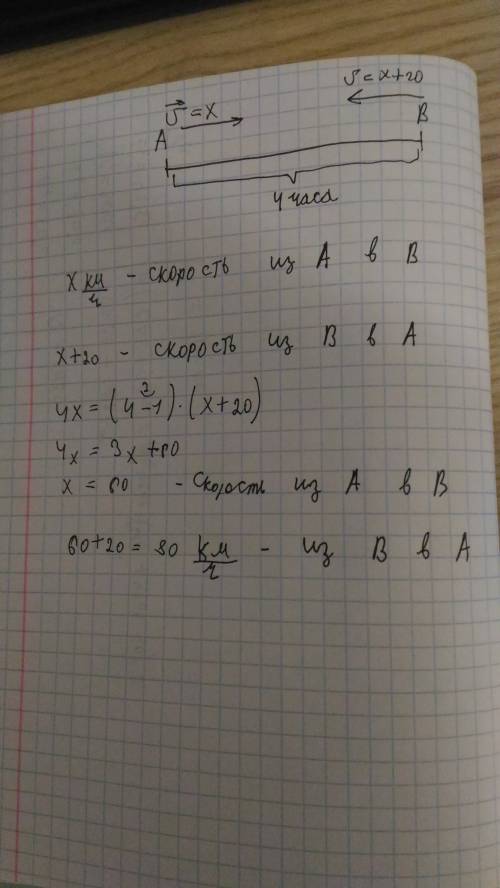 v = x+20
v = x
A
B
4 часа
x км/ч - скорость из A в B
x+20 - скорость из B в A
4x = (4-1)·(x+20)
4x = 3x + 60
x = 60 - Скорость из A в B
60+20 = 80 км/ч - из B в A